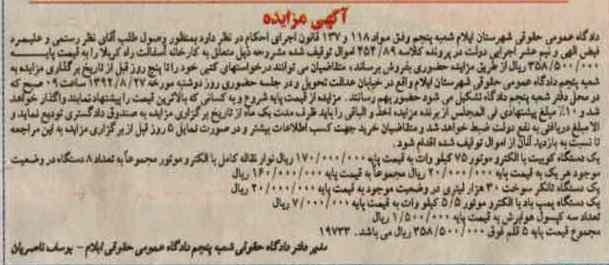 آگهی مزایده
دادگاه عمومی حقوقی شهرستان ایلام شعبه پنجم وفق مواد ۱۱۸ و ۱۳۷ قانون اجرای احکام در نظر دارد بمنظور وصول طلب آقای نظر رستمی و علیمرد
فیض الهی و نیم عشر اجرایی دولت در پرونده کلاسه ۲۵۴/۸۹ اموال توقیف شده مشروحه ذیل متعلق به کارخانه آسفالت راه کربلا را به قیمت پایه
۳۵۸/۵۰۰/۰۰۰ ریال از طریق مزایده حضوری بفروش برساند، متقاضیان می توانند درخواستهای کتبی خود را تا پنج روز قبل از تاریخ برگزاری مزایده به
شعبه پنجم دادگاه عمومی حقوقی شهرستان ایلام واقع در خیابان عدالت تحویل و در جلسه حضوری روز دوشنبه مورخه ۱۳۹۲/۸/۲۷ ساعت ۰۹ صبح که
در محل دفتر شعبه پنجم دادگاه تشکیل می شود حضور بهم رسانند. مزایده از قیمت پایه شروع و به کسانی که بالاترین قیمت را پیشنهاد نمایند واگذار خواهد
شد و ۱۰٪ مبلغ پیشنهادی فی المجلس از برنده مزایده اخذ و الباقی را باید ظرف مدت یک ماه از تاریخ برگزاری مزایده به صندوق دادگستری تودیع نماید و
الا مبلغ دریافتی به نفع دولت ضبط خواهد شد و متقاضیان خرید جهت کسب اطلاعات بیشتر و در صورت تمایل ۵ روز قبل از برگزاری مزایده به این مراجعه
تا نسبت به بازدید آنان از اموال توقیف شده اقدام شود.
یک دستگاه کوبیت با الکترو موتور ۷۵ کیلو وات به قیمت پایه ۱۷۰/۰۰۰/۰۰۰ ریال نوار نقاله کامل با الکترو موتور مجموعاً به تعداد ۸ دستگاه در وضعیت
موجود هر یک به قیمت پایه ۲۰/۰۰۰/۰۰۰ ریال مجموعاً به قیمت پایه ۱۶۰/۰۰۰/۰۰۰ ریال
یک دستگاه تانکر سوخت ۳۰ هزار لیتری در وضعیت موجود به قیمت پایه ۲۰/۰۰۰/۰۰۰ ریال
یک دستگاه پمپ باد با الکترو موتور ۵/۵ کیلو وات به قیمت پایه ۷/۰۰۰/۰۰۰ ریال
تعداد سه کپسول هوابرش به قیمت پایه ۱/۵۰۰/۰۰۰ ریال
مجموع قیمت پایه ۵ قلم فوق ۳۵۸/۵۰۰/۰۰۰ ریال می باشد. ۱۹۷۳۳
مدیر دفتر دادگاه حقوقی شعبه پنجم دادگاه عمومی حقوقی ایلام - یوسف ناصریان